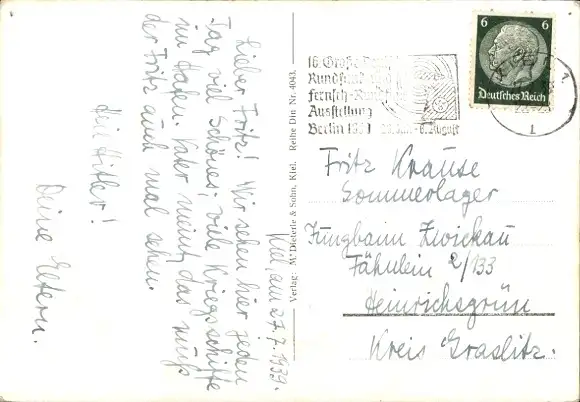 Kiel, am 27.7.1939.
Lieber Fritz! Wir sehen hier jeden
Tag viel Schönes, viele Kriegsschiffe
im Hafen. Vater meint, das muß
der Fritz auch mal sehen.
Heil Hitler!
Deine Eltern.
Verlag: W. Dieterle & Sohn, Kiel. Reihe Din Nr. 4043.
16. Große
Rundfunk und
Fernseh-Rundf
Ausstellung
Berlin 1939 28. Juli - 6. August
6 6
Deutsches Reich
Fritz Krause
Sommerlager
Jungbann Zwickau
Fähnlein 2/133
Heinrichsgrün
Kreis Graslitz.